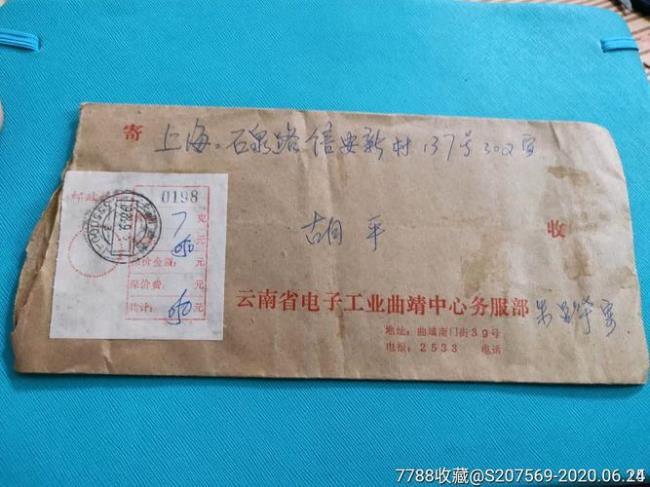 寄
上海。石泉路信安新村137号302室
0198
7 克
元
价金额： 元
保价费： 元
共计： 元
胡 平
收
云南省电子工业曲靖中心务服部
地址：曲靖南门街39号
电报：2533 电话
7788收藏@S207569-2020.06.24